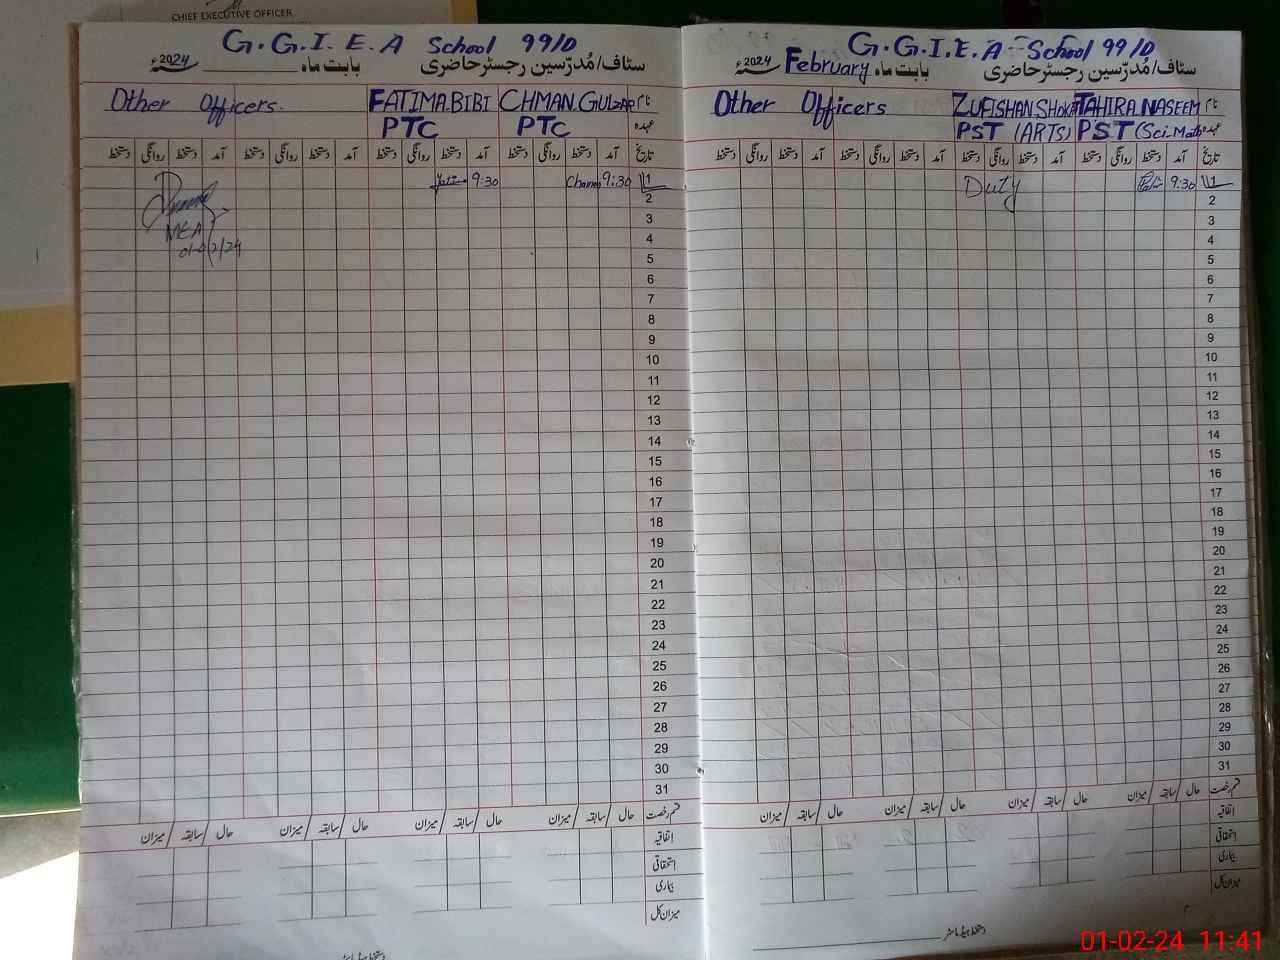 CHIEF EXECUTIVE OFFICER
G.G.I.E.A School 99/D
سٹاف/مُدرّسین رجسٹر حاضری بابت ماہ 2024ء
نام CHMAN.GULZAR FATIMA.BIBI Other Officers.
عہدہ PTC PTC
تاریخ آمد دستخط روانگی دستخط آمد دستخط روانگی دستخط آمد دستخط روانگی دستخط آمد دستخط روانگی دستخط
1 9:30 9:30
2
3
MEA
4
01-02/24
5
6
7
8
9
10
11
12
13
14
15
16
17
18
19
20
21
22
23
24
25
26
27
28
29
30
31
قسم رخصت حال / سابقہ / میزان حال / سابقہ / میزان حال / سابقہ / میزان حال / سابقہ / میزان
اتفاقیہ
استحقاقی
بیماری
میزان کل
دستخط ہیڈ ماسٹر
G.G.I.E.A School 99/D
سٹاف/مُدرّسین رجسٹر حاضری بابت ماہ February 2024ء
نام TAHIRA.NASEEM ZUFISHAN.SHOKAT Other Officers
عہدہ PST (Sci.Math) PST (ARTS)
تاریخ آمد دستخط روانگی دستخط آمد دستخط روانگی دستخط آمد دستخط روانگی دستخط آمد دستخط روانگی دستخط
1 9:30 Duty
2
3
4
5
6
7
8
9
10
11
12
13
14
15
16
17
18
19
20
21
22
23
24
25
26
27
28
29
30
31
قسم رخصت حال / سابقہ / میزان حال / سابقہ / میزان حال / سابقہ / میزان حال / سابقہ / میزان
اتفاقیہ
استحقاقی
بیماری
میزان کل
دستخط ہیڈ ماسٹر
01-02-24 11:41